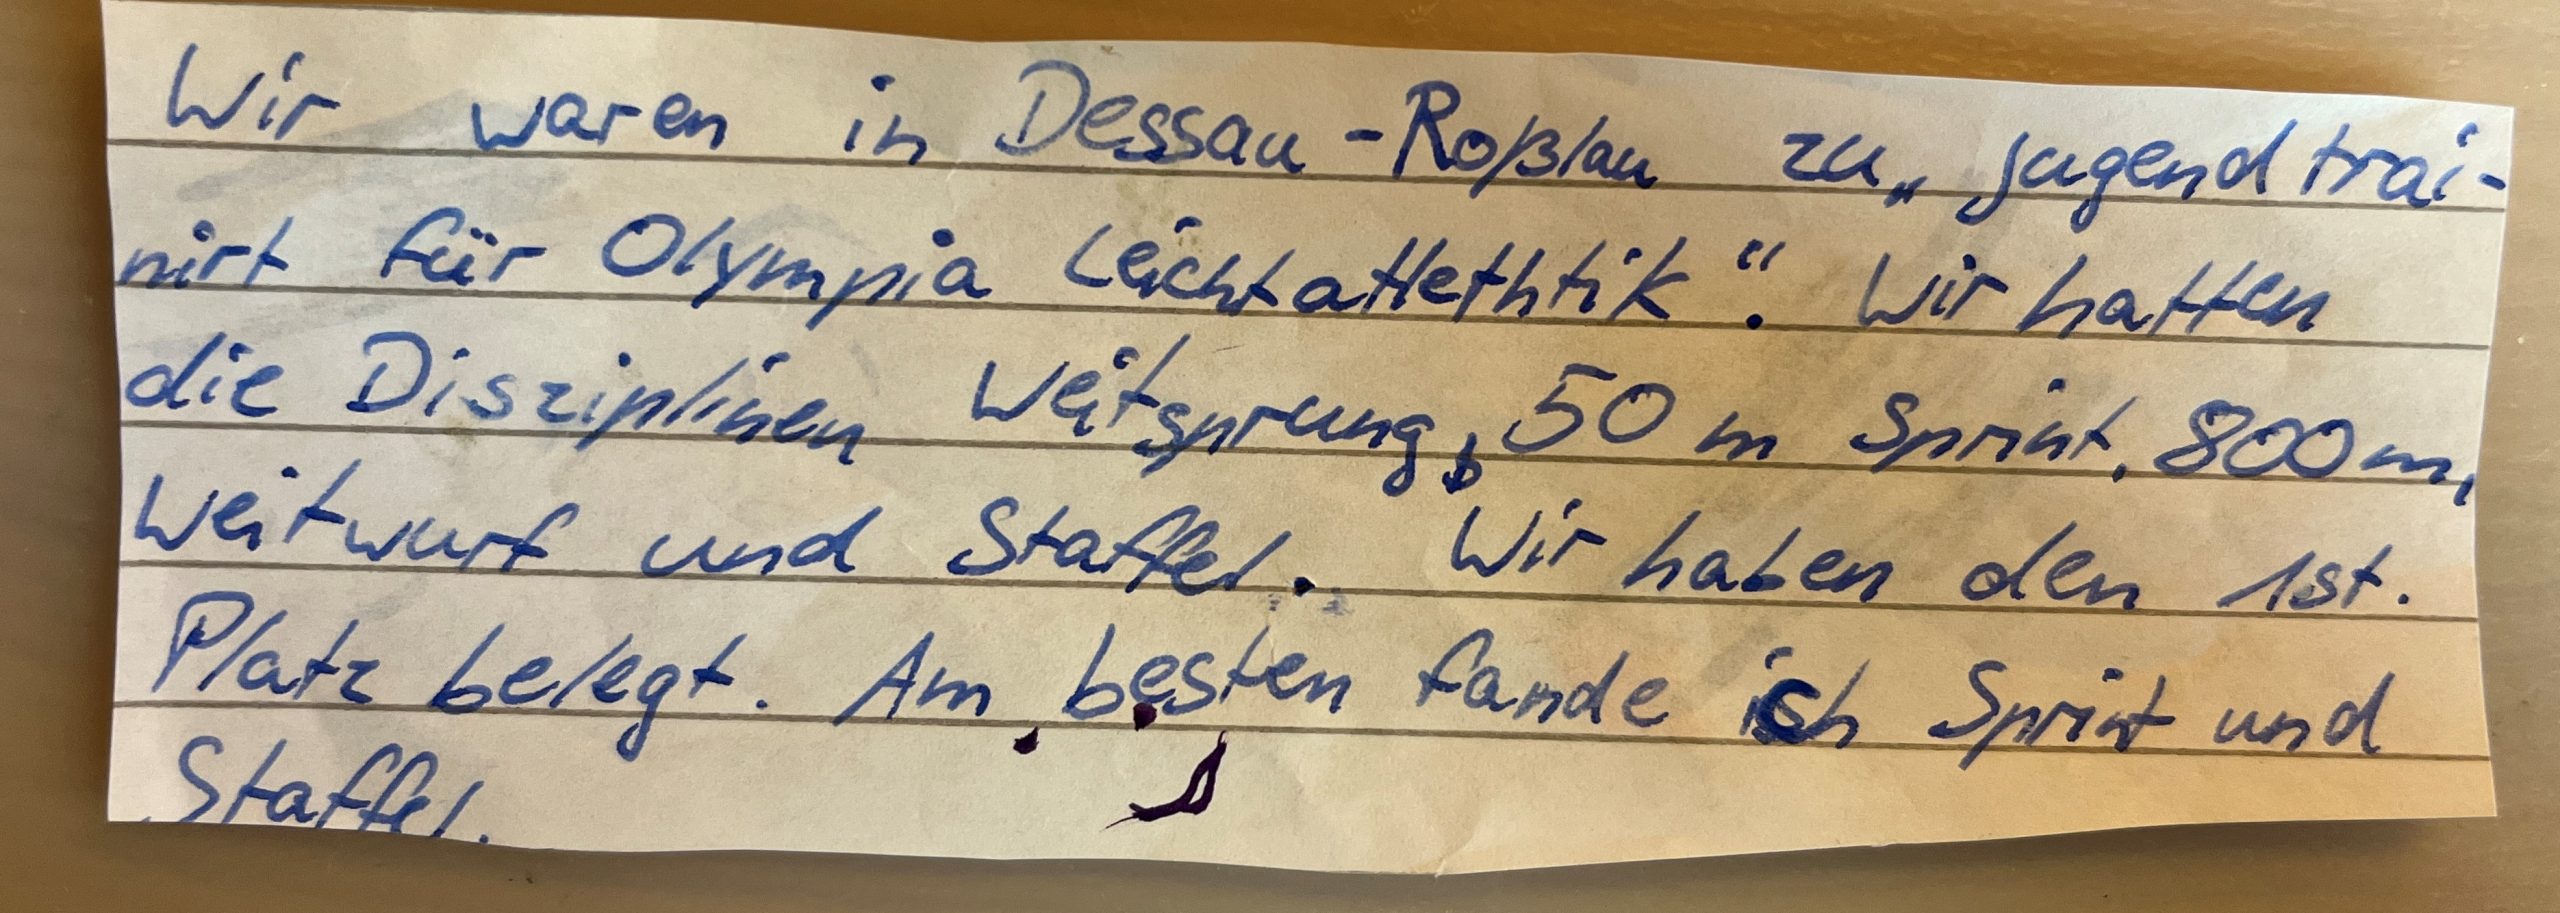 Wir waren in Dessau-Roßlau zu „Jugend trai-
nirt für Olympia Leichtatlethtik“. Wir hatten
die Disziplinen Weitsprung, 50 m Sprint, 800 m,
Weitwurf und Staffel. Wir haben den 1st.
Platz belegt. Am besten fande ich Sprint und
Staffel.